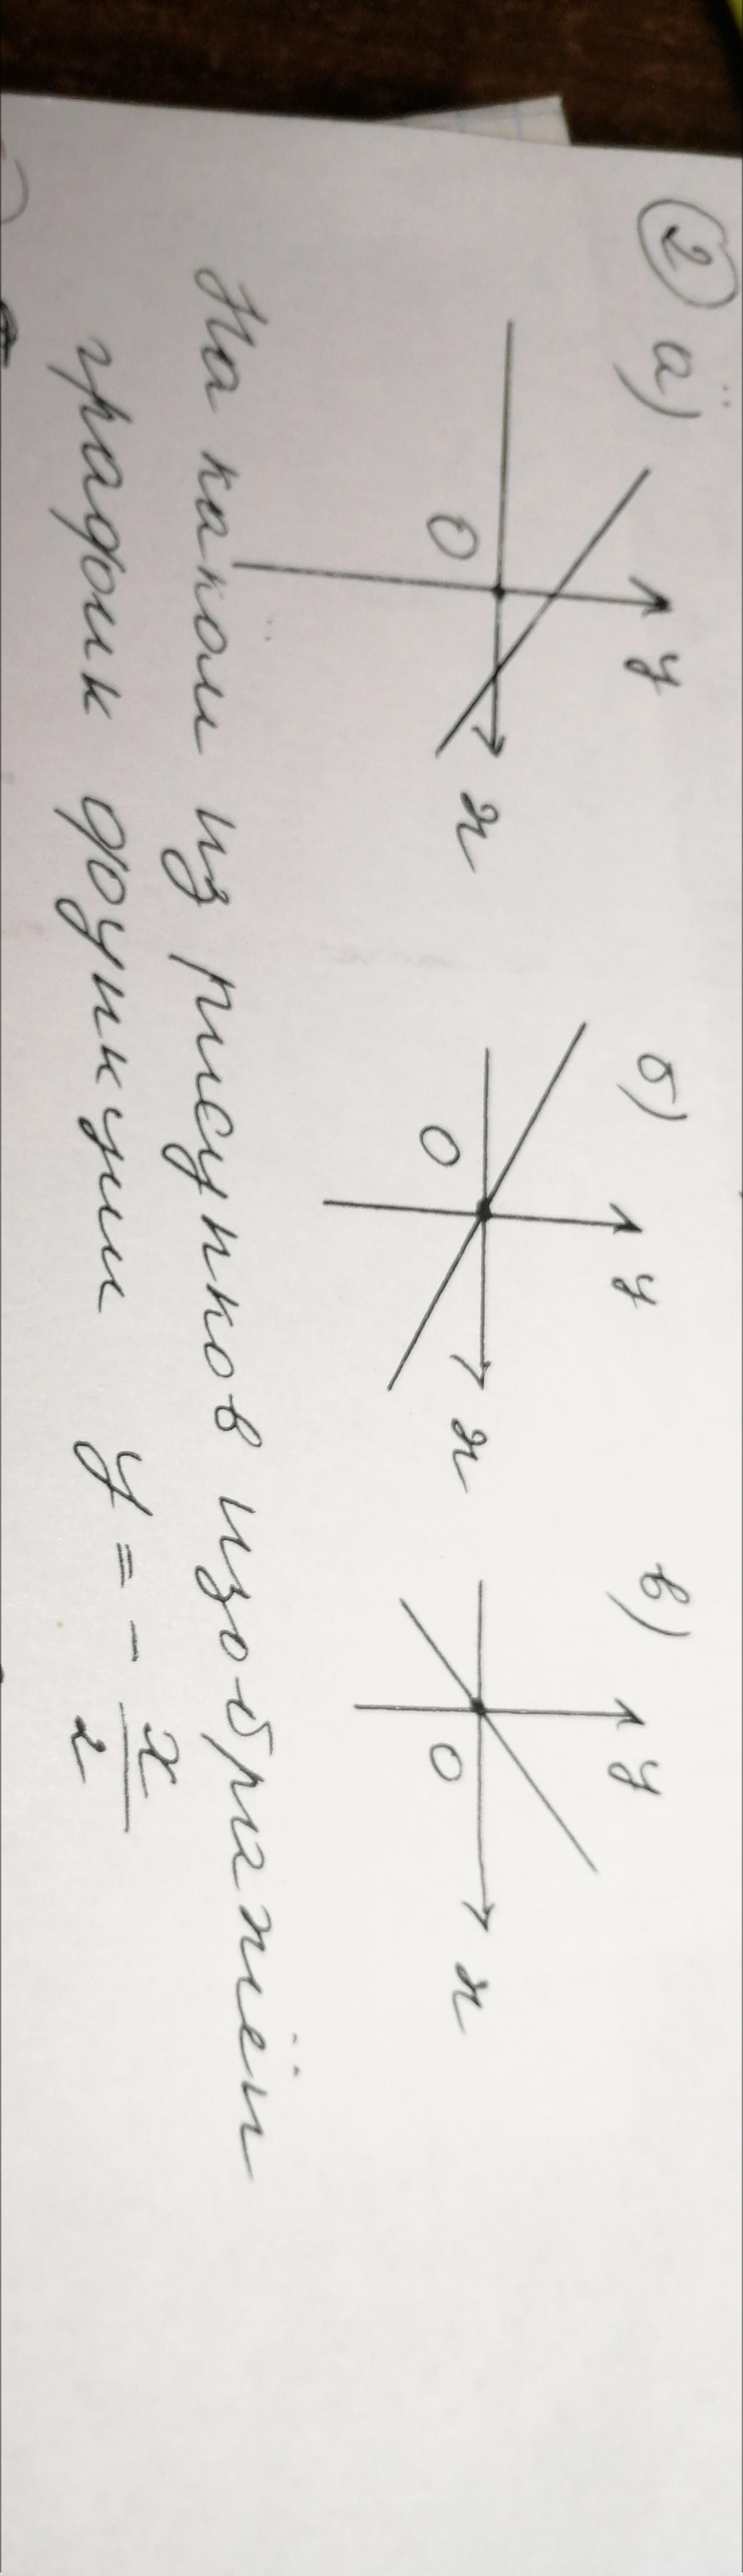 ② а) y б) y в) y
0 x 0 x 0 x
На каком из рисунков изображён
график функции y = - x/2